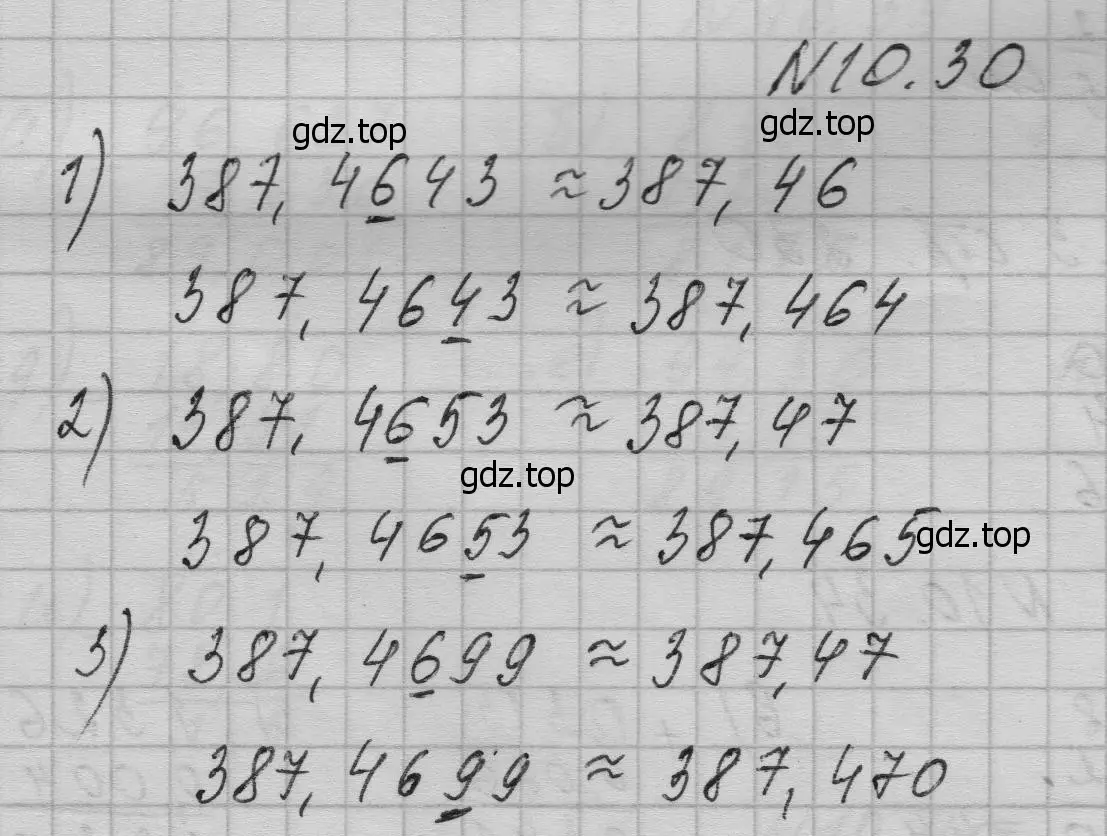 N10.30
gdz.top
gdz.top
1) 387,4643 ≈ 387,46
387,4643 ≈ 387,464
2) 387,4653 ≈ 387,47
gdz.top
387,4653 ≈ 387,465
gdz.top
3) 387,4699 ≈ 387,47
387,4699 ≈ 387,470